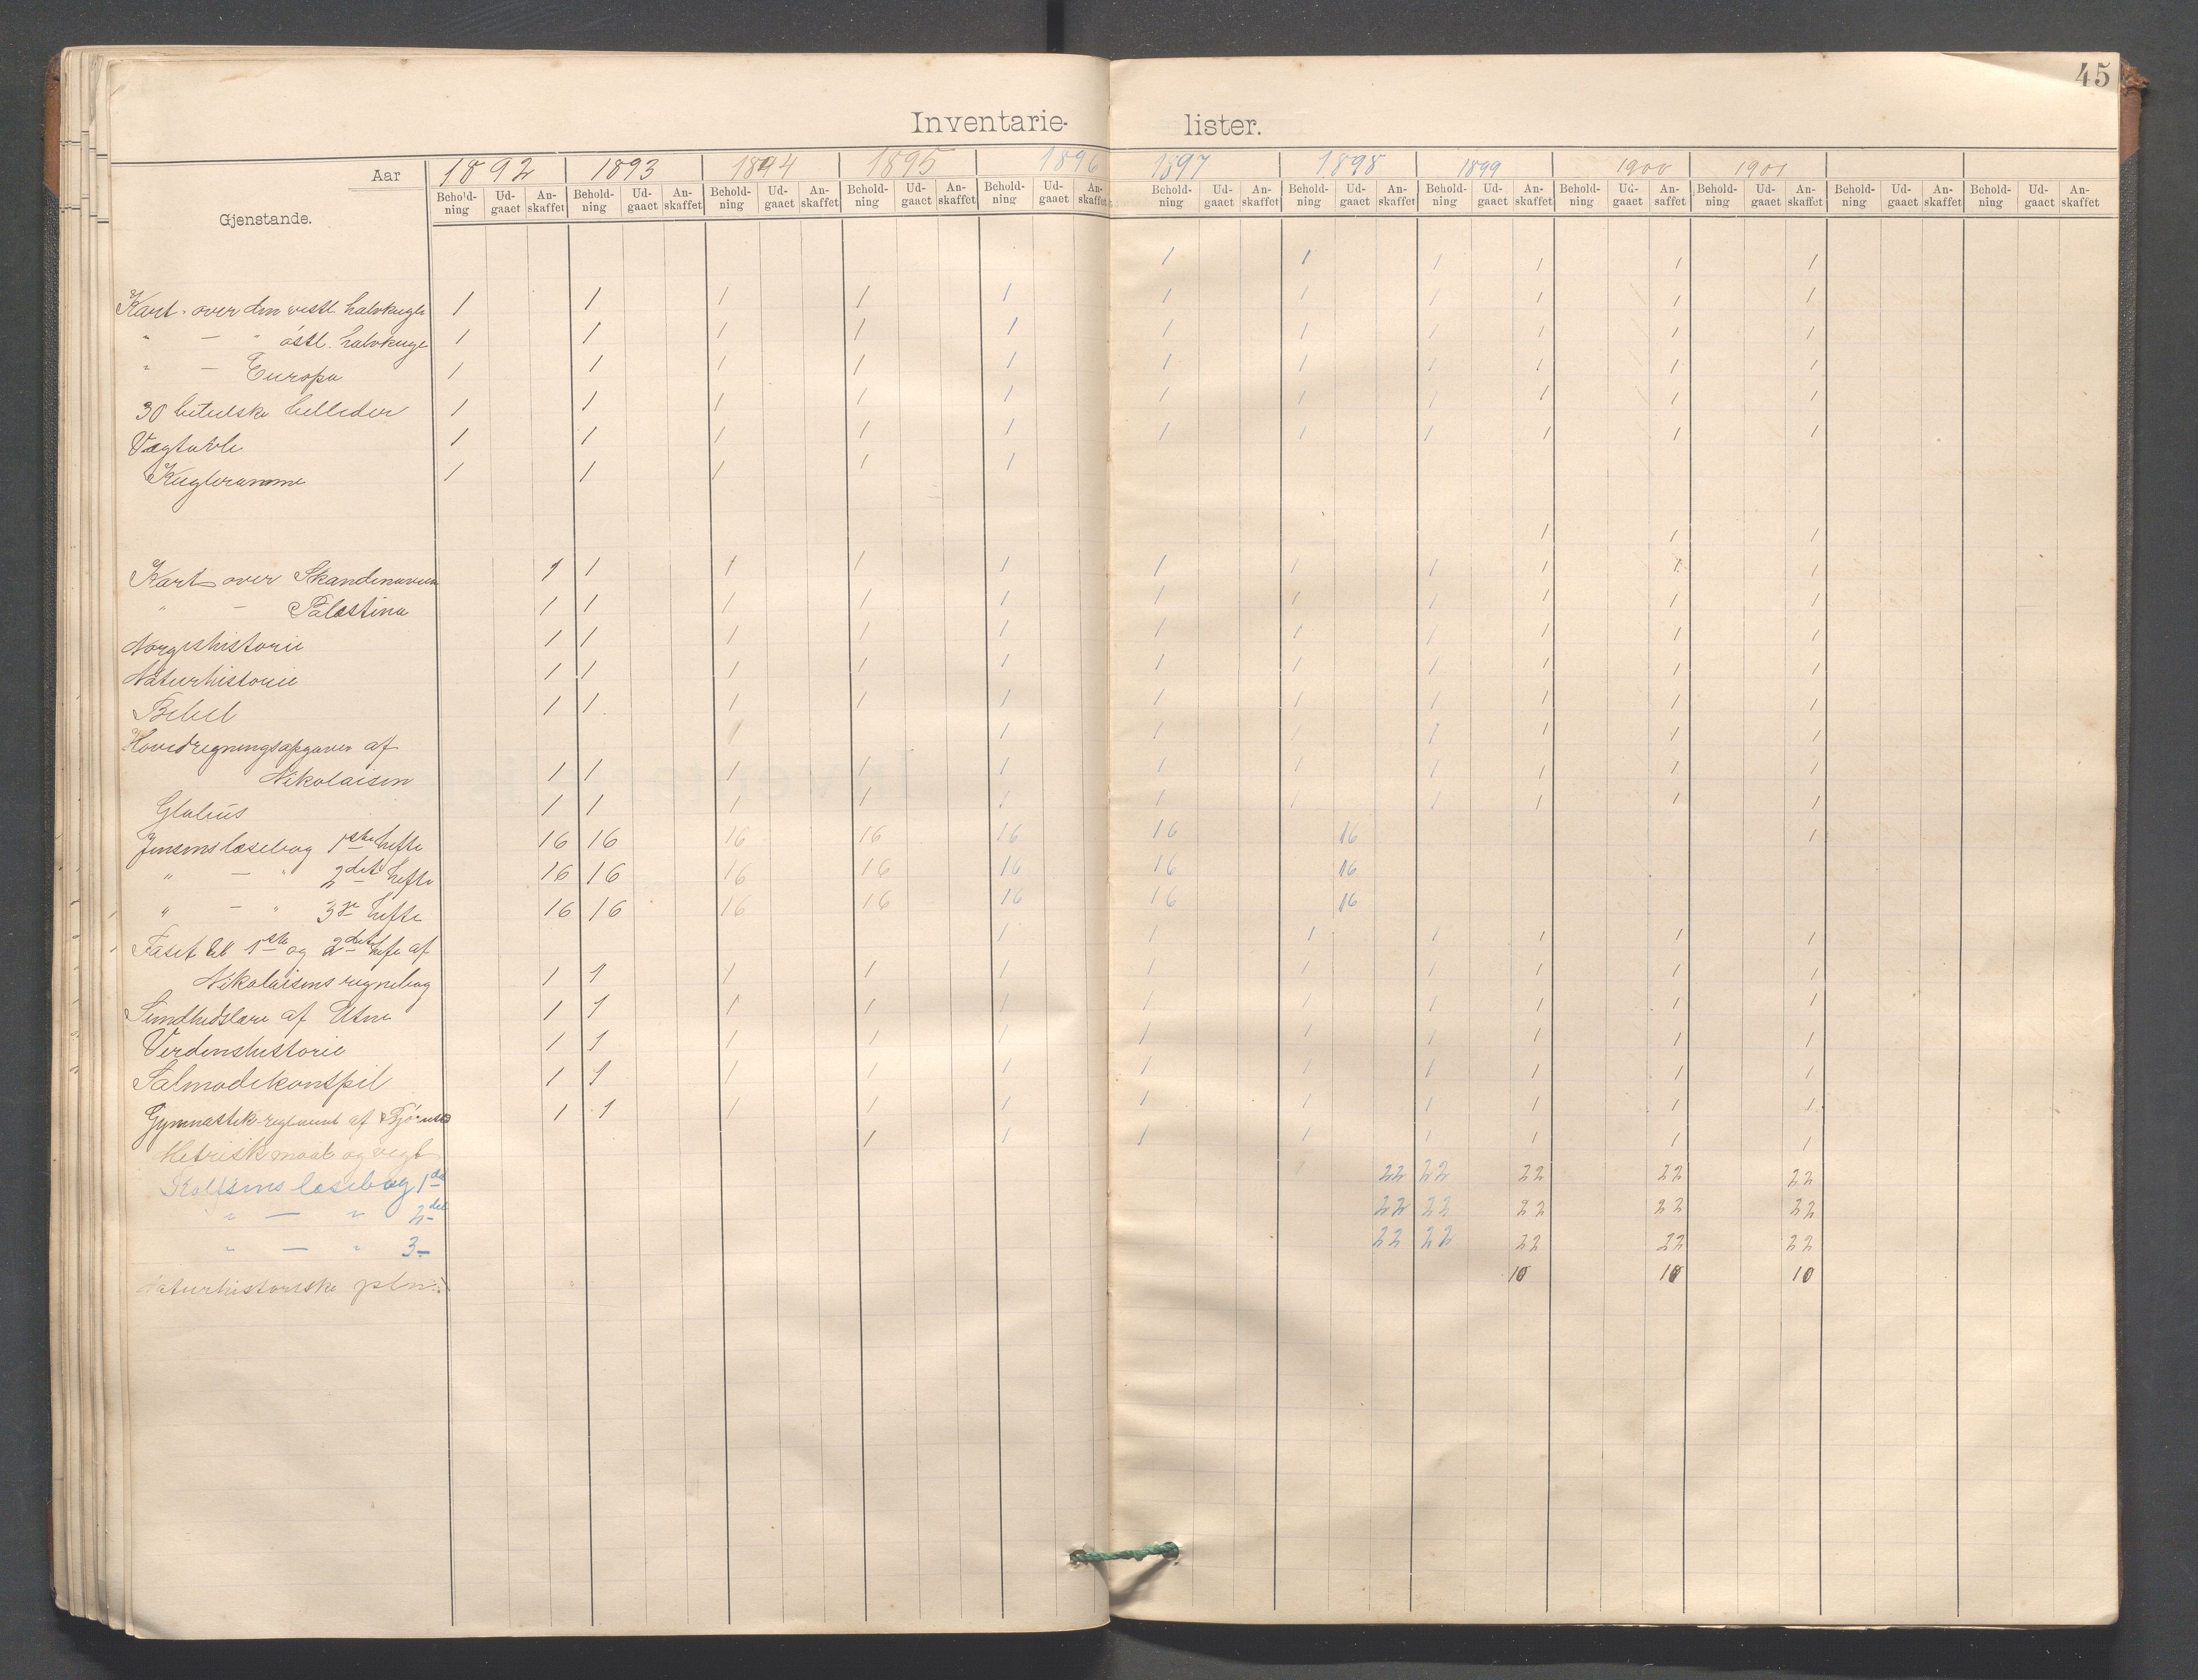 45
Inventarie- lister.
Aar 1892 1893 1894 1895 1896 1897 1898 1899 1900 1901
Gjenstande. Behold-ning Ud-gaaet An-skaffet Behold-ning Ud-gaaet An-skaffet Behold-ning Ud-gaaet An-skaffet Behold-ning Ud-gaaet An-skaffet Behold-ning Ud-gaaet An-skaffet Behold-ning Ud-gaaet An-skaffet Behold-ning Ud-gaaet An-skaffet Behold-ning Ud-gaaet An-skaffet Behold-ning Ud-gaaet An-saffet Behold-ning Ud-gaaet An-skaffet Behold-ning Ud-gaaet An-skaffet Behold-ning Ud-gaaet An-skaffet
1 1 1 1 1 1
Kart over den vestl. halvkugle 1 1 1 1 1 1 1 1 1 1 1
" — " östl. halvkugle 1 1 1 1 1 1 1 1 1 1 1
" — Europa 1 1 1 1 1 1 1 1 1 1 1
30 bibelske billeder 1 1 1 1 1 1 1 1 1 1 1
Vægtavle 1 1 1 1 1 1 1 1 1 1 1
Kugleramme 1 1 1 1 1
1 1 1
Kart over Skandinavien 1 1 1 1 1 1 1 1 1 1 1
" — Palæstina 1 1 1 1 1 1 1 1 1 1 1
Norgeshistorie 1 1 1 1 1 1 1 1 1 1 1
Naturhistorie 1 1 1 1 1 1 1 1 1 1 1
Bibel 1 1 1 1 1 1 1 1 1 1 1
Hovedregningsopgaver af 1 1 1 1 1 1 1
Nikolaisen 1 1 1 1 1 1 1 1 1 1 1
Globus 1 1 1 1 1 1 1 1 1 1 1
Jensens læsebog 1ste hefte 16 16 16 16 16 16 16 1
" — " 2det hefte 16 16 16 16 16 16 16
" — " 3je hefte 16 16 16 16 16 16 16
Faset til 1ste og 2det hefte af 1 1 1 1 1 1 1
Nikolaisens regnebog 1 1 1 1 1 1 1 1 1 1 1
Sundhedslære af Utne 1 1 1 1 1 1 1 1 1 1 1
Verdenshistorie 1 1 1 1 1 1 1 1 1 1 1
Salmodikonspil 1 1 1 1 1 1 1 1 1 1 1
Gymnastik-reglement af 1 1 1 1 1 1 1 1 1 1 1
Metrisk maal og vegt 1 1 1 1 1 1 1 1
Rolfsens læsebog 1 del 22 22 22 22 22
" — " 2 del 22 22 22 22 22
" — " 3 - 22 22 22 22 22
Naturhistoriske 10 10 10